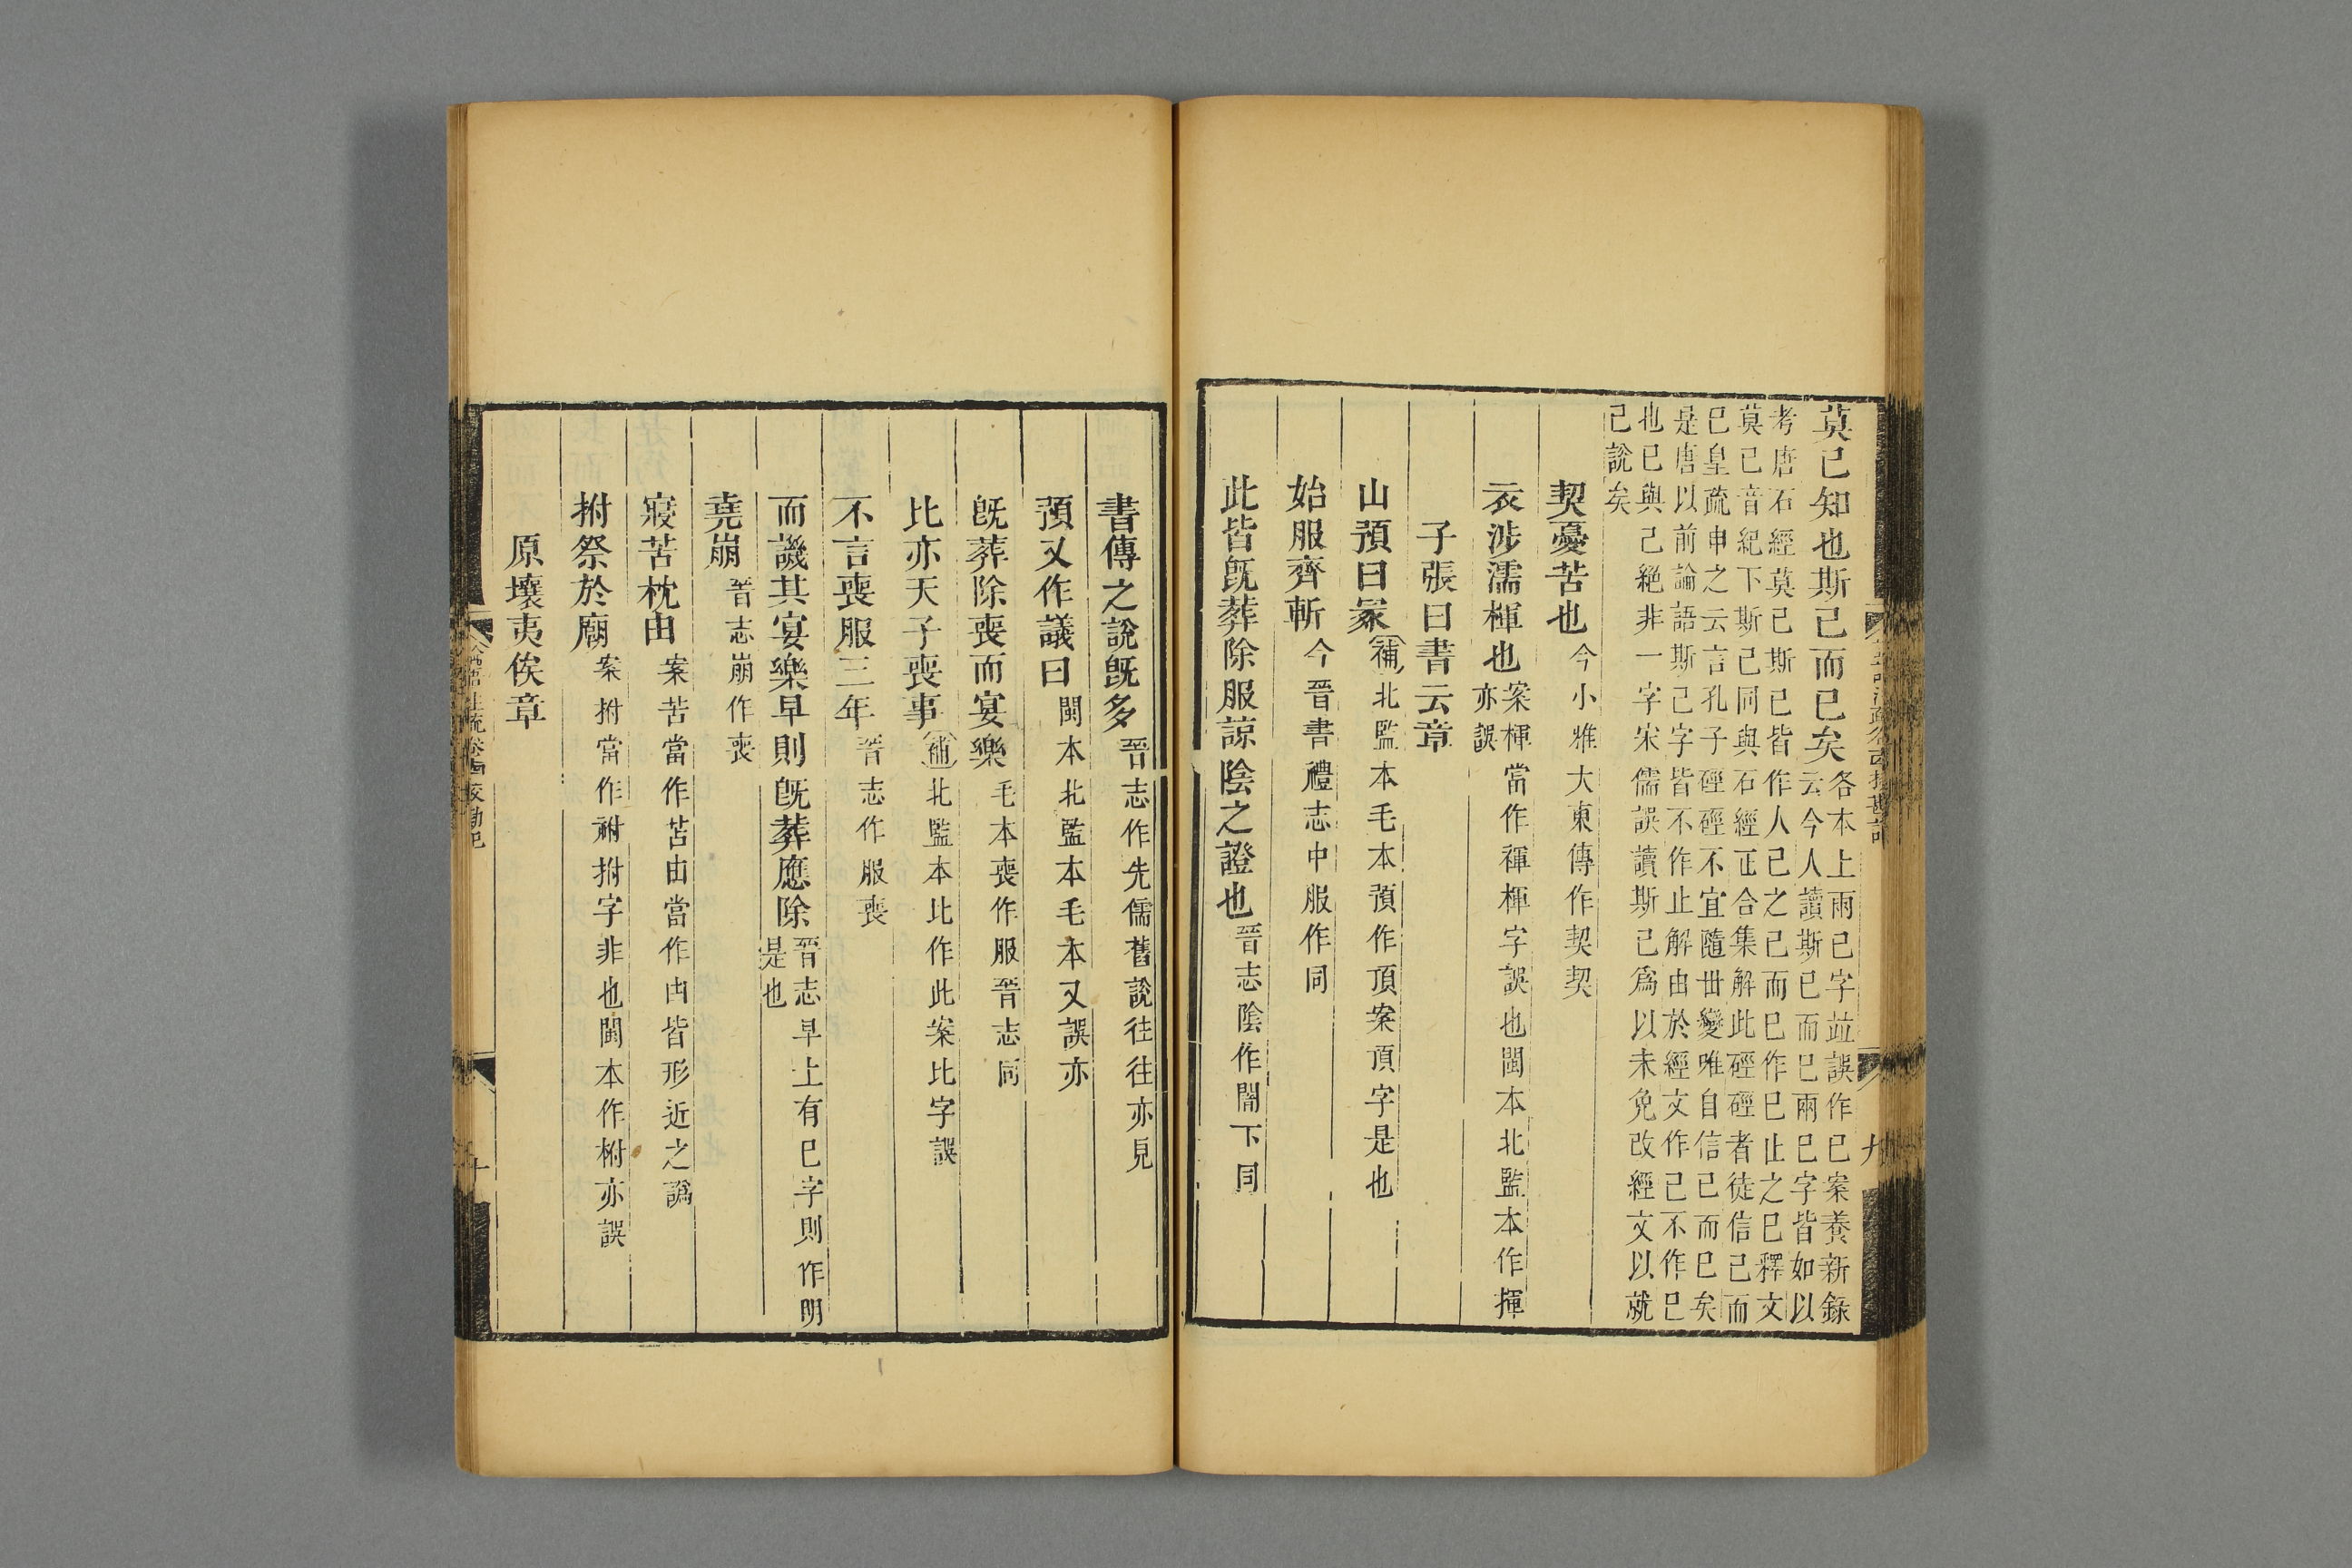 莫己知也斯己而已矣各本上兩己字竝誤作已案養新錄
云今人讀斯已而已兩已字皆如以
考唐石經莫己斯己皆作人己之己而已作已止之已釋文
莫己音紀下斯己同與石經正合集解此硜硜者徒信己而
已皇疏申之云言孔子硜硜不宜隨世變唯自信己而已矣
是唐以前論語斯己字皆不作止解由於經文作己不作已
也已與己絕非一字宋儒誤讀斯己爲以未免改經文以就
己說矣
契憂苦也今小雅大東傳作契契
衣涉濡楎也案楎當作褌楎字誤也閩本北監本作揮
亦誤
子張曰書云章
山預曰冢補北監本毛本預作頂案頂字是也
始服齊斬今晉書禮志中服作同
此皆旣葬除服諒陰之證也晉志陰作闇下同
九
書傳之說旣多晉志作先儒舊說往往亦見
預又作議曰閩本北監本毛本又誤亦
旣葬除喪而宴樂毛本喪作服晉志同
比亦天子喪事補北監本比作此案比字誤
不言喪服三年晉志作服喪
而譏其宴樂早則旣葬應除晉志早上有已字則作明
是也
堯崩晉志崩作喪
寢苦枕由案苦當作苫由當作凷皆形近之譌
拊祭於廟案拊當作祔拊字非也閩本作柎亦誤
原壤夷俟章
論語注疏卷十四校勘記
十